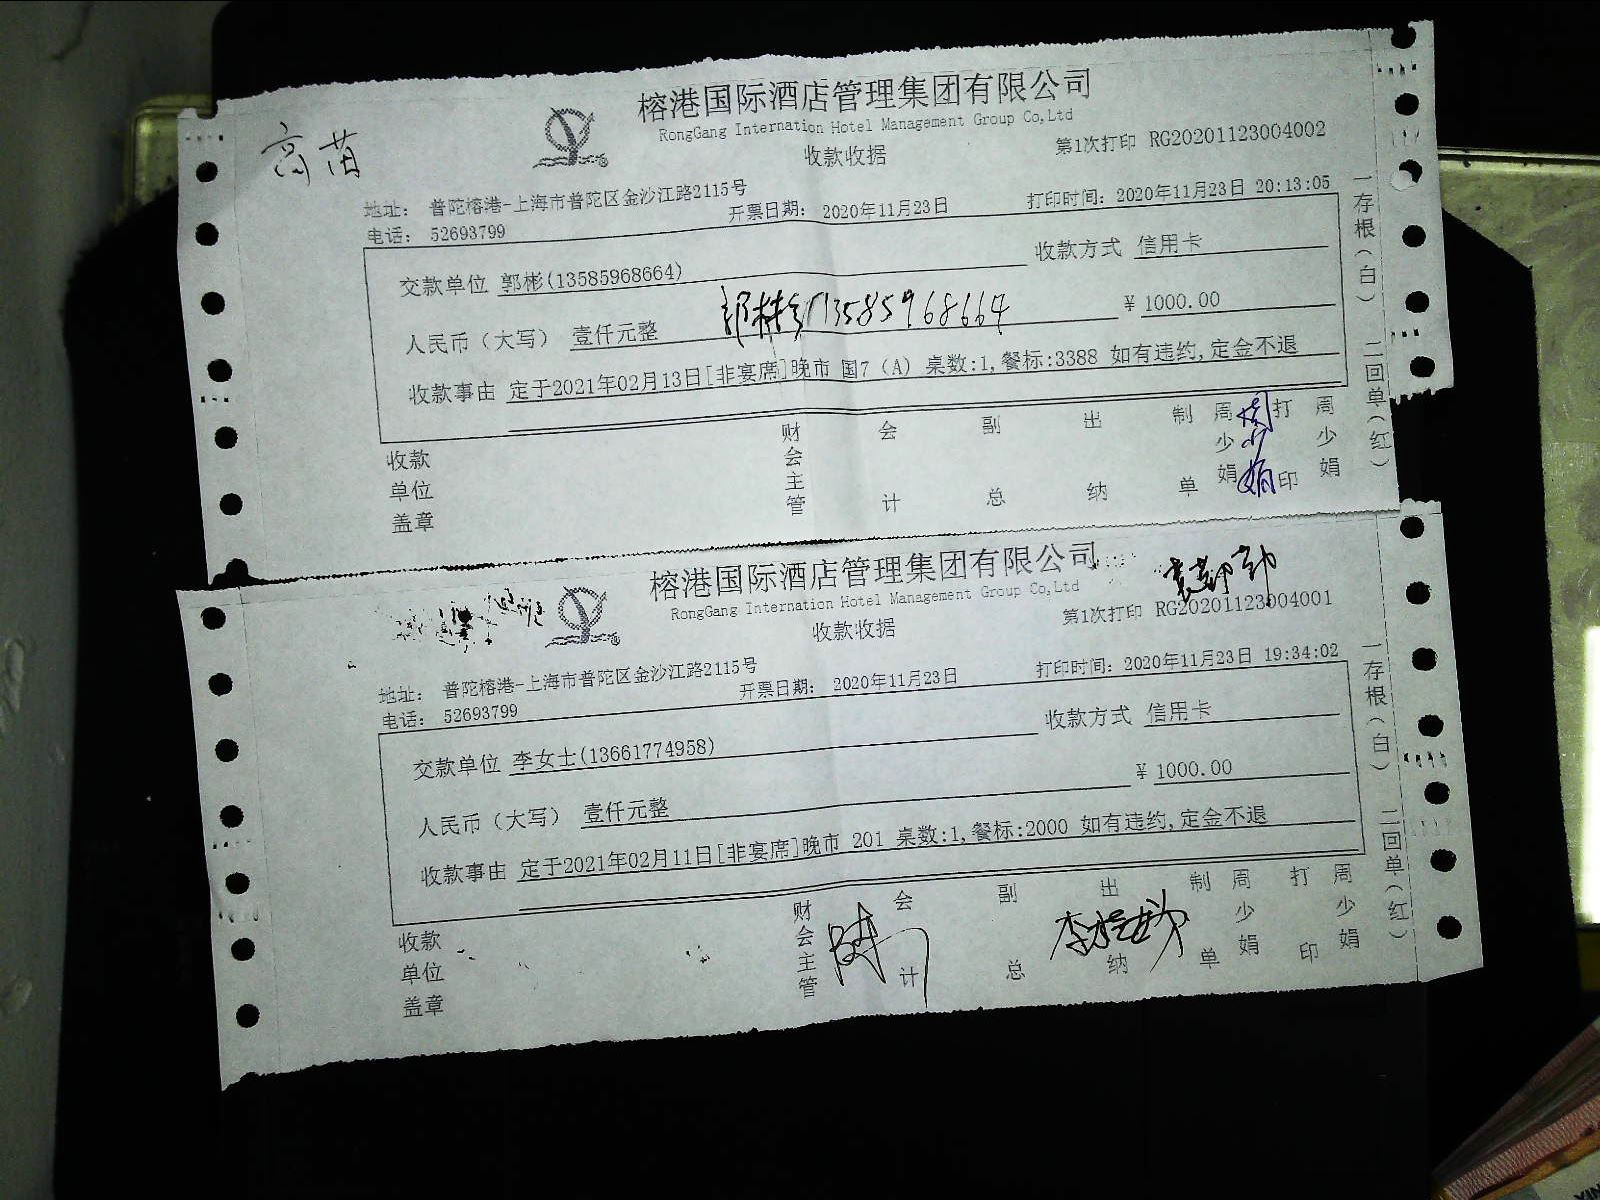 高苗
榕港国际酒店管理集团有限公司
RongGang Internation Hotel Management Group Co,Ltd
收款收据
第1次打印 RG20201123004002
地址： 普陀榕港-上海市普陀区金沙江路2115号
电话： 52693799
开票日期： 2020年11月23日
打印时间： 2020年11月23日 20:13:05
交款单位 郭彬(13585968664)
收款方式 信用卡
人民币（大写） 壹仟元整
郭彬 13585968664
¥ 1000.00
收款事由 定于2021年02月13日[非宴席]晚市 国7（A）桌数:1,餐标:3388 如有违约,定金不退
收款单位盖章
财会主管
会计
副总
出纳
制单
周少娟
周少娟
打印
周少娟
一存根（白） 二回单（红）
榕港国际酒店管理集团有限公司
RongGang Internation Hotel Management Group Co,Ltd
收款收据
第1次打印 RG20201123004001
地址： 普陀榕港-上海市普陀区金沙江路2115号
电话： 52693799
开票日期： 2020年11月23日
打印时间： 2020年11月23日 19:34:02
交款单位 李女士(13661774958)
收款方式 信用卡
人民币（大写） 壹仟元整
¥ 1000.00
收款事由 定于2021年02月11日[非宴席]晚市 201 桌数:1,餐标:2000 如有违约,定金不退
收款单位盖章
财会主管
会计
副总
出纳
制单
周少娟
打印
周少娟
一存根（白） 二回单（红）